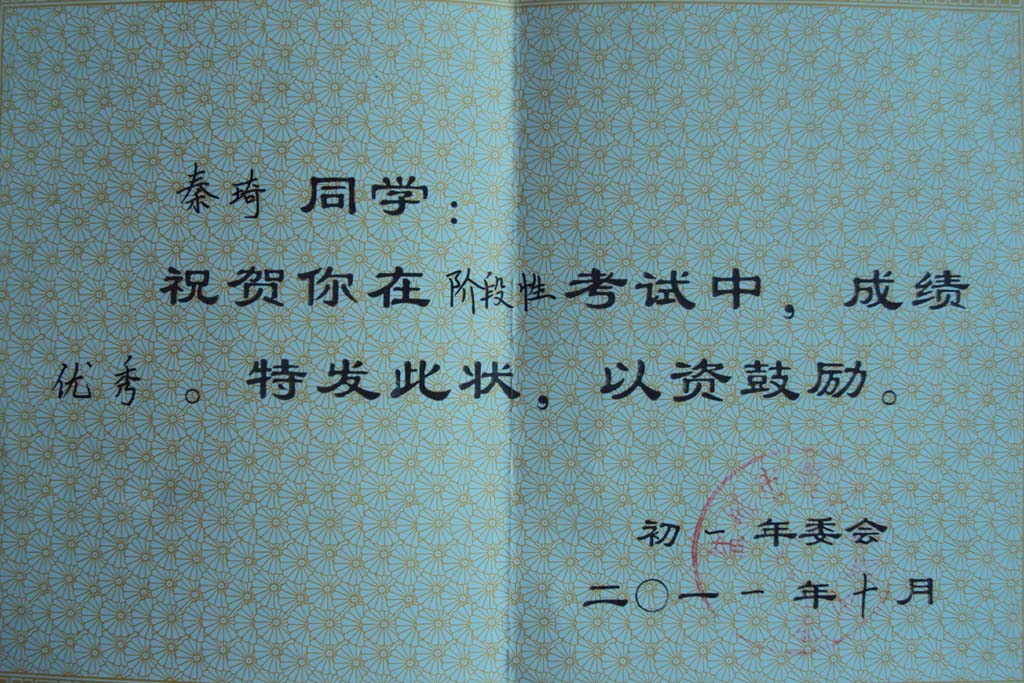 秦琦 同学：
祝贺你在阶段性考试中，成绩
优秀。特发此状，以资鼓励。
初一年委会
二〇一一年十月